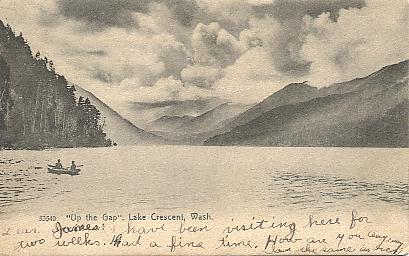 53549 "Up the Gap", Lake Crescent, Wash.
Dear James: I have been visiting here for
two weeks. Had a fine time. How are you anyway